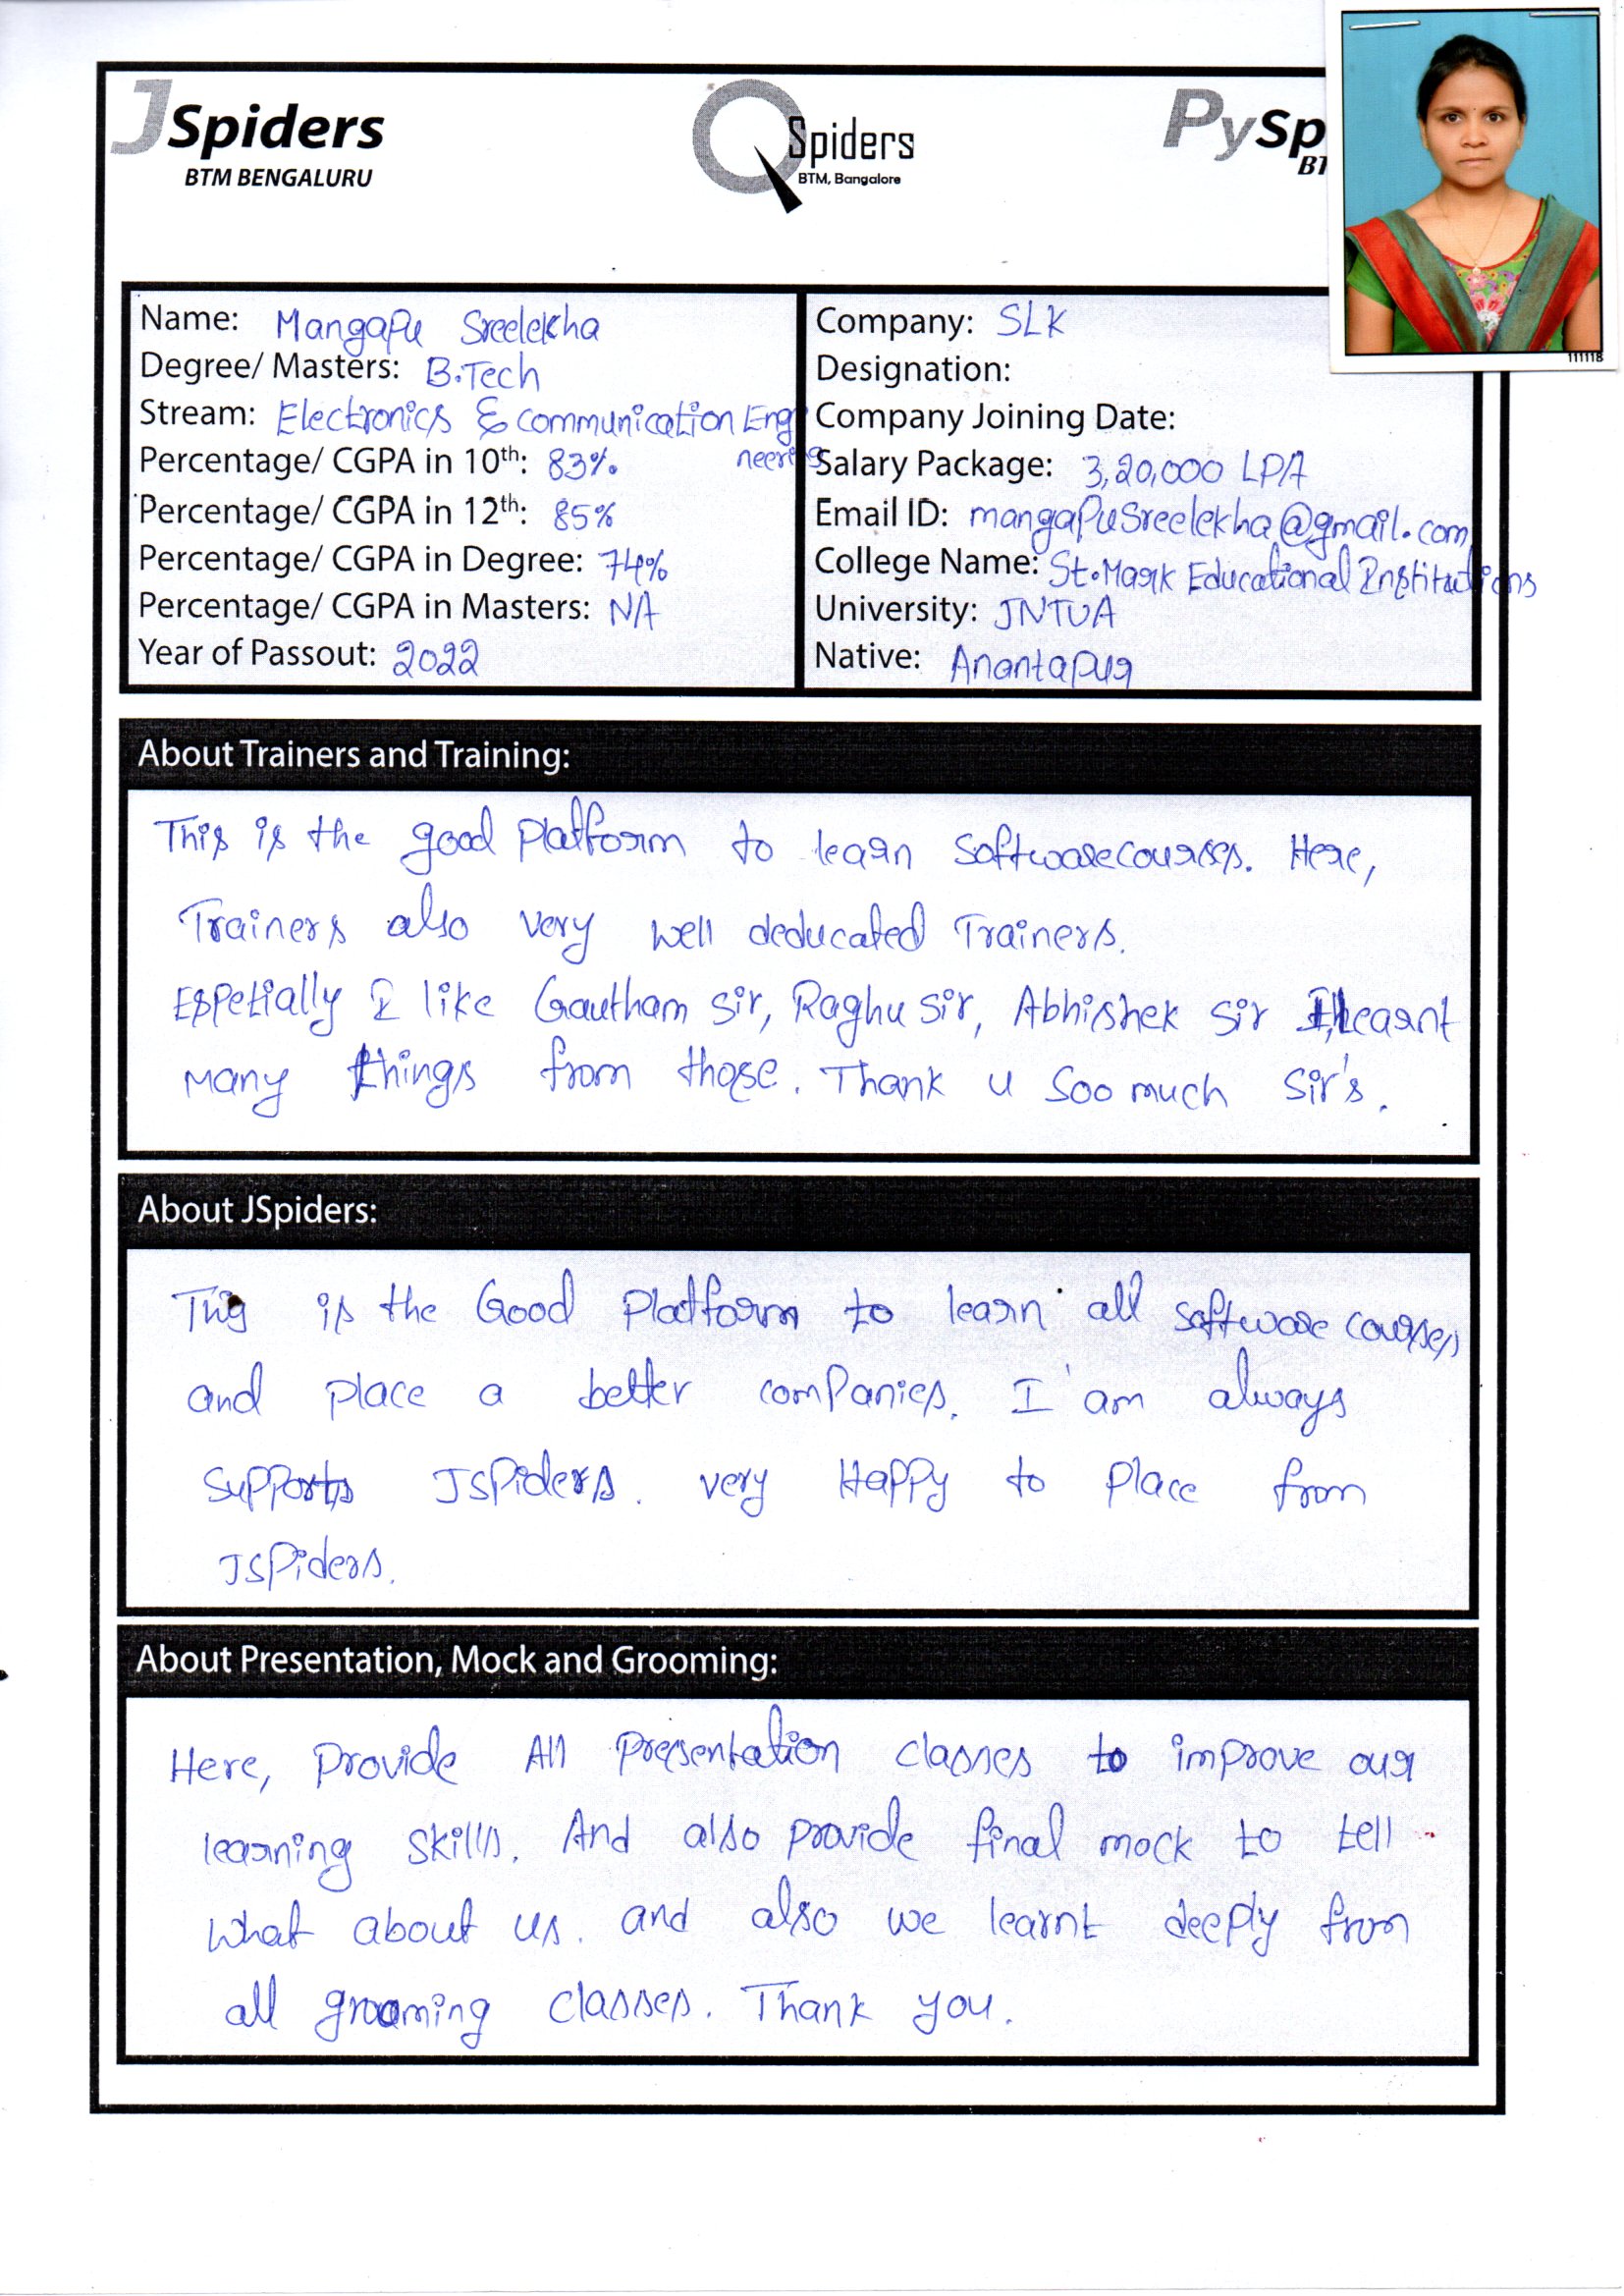 JSpiders
BTM BENGALURU
QSpiders
BTM, Bangalore
PySp
BT
111118
Name: Mangapu Sreelekha
Degree/ Masters: B.Tech
Stream: Electronics & communication Engi
neering
Percentage/ CGPA in 10th: 83%
Percentage/ CGPA in 12th: 85%
Percentage/ CGPA in Degree: 74%
Percentage/ CGPA in Masters: NA
Year of Passout: 2022
Company: SLK
Designation:
Company Joining Date:
Salary Package: 3,20,000 LPA
Email ID: mangapusreelekha@gmail.com
College Name: St.Mark Educational Institutions
University: JNTUA
Native: Anantapur
About Trainers and Training:
This is the good Platform to learn Software courses. Here,
Trainers also very well deducated Trainers.
Espetially I like Gautham Sir, Raghu Sir, Abhishek Sir I learnt
many things from those. Thank u Soo much Sir's.
About JSpiders:
This is the Good Platform to learn all software courses
and place a better companies. I am always
supports JSpiders. very Happy to place from
JSpiders.
About Presentation, Mock and Grooming:
Here, Provide All Presentation classes to improve our
learning skills. And also provide final mock to tell
what about us. and also we learnt deeply from
all grooming classes. Thank you.